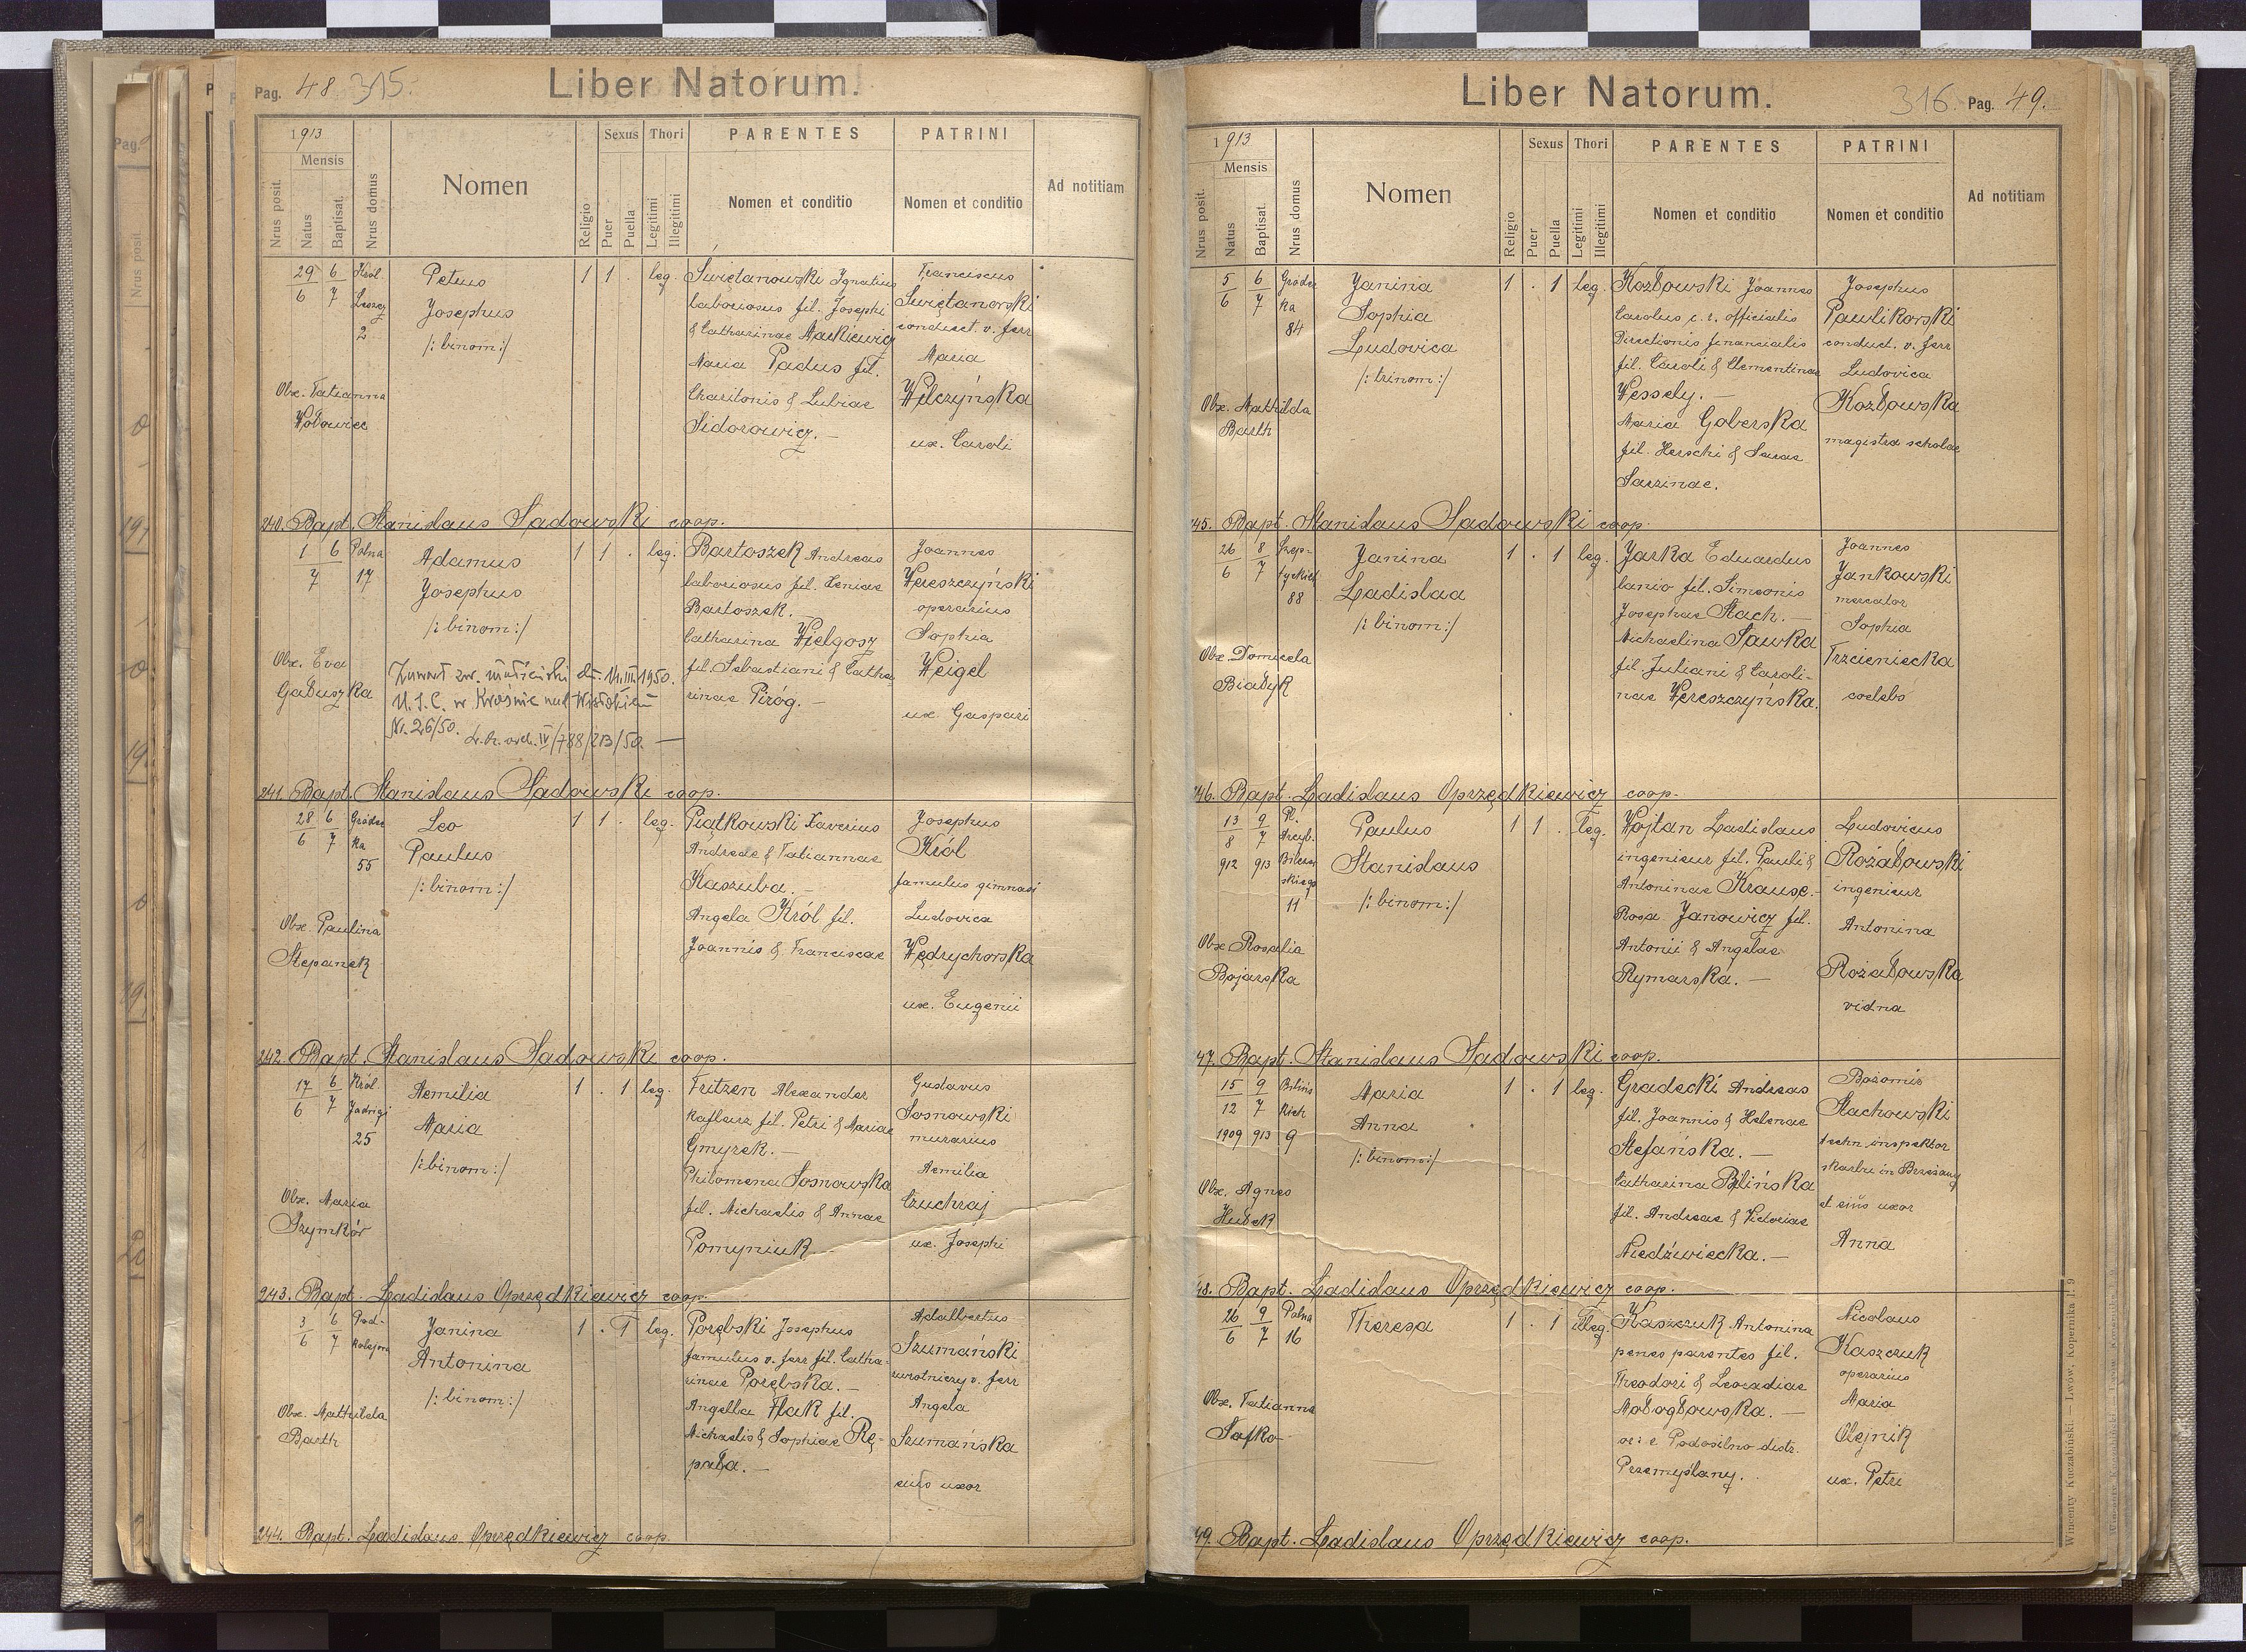 Pag. 48 315.
Liber Natorum.
1913
Mensis
Nrus posit.
Natus
Baptisat.
Nrus domus
Nomen
Religio
Sexus
Puer
Puella
Thori
Legitimi
Illegitimi
PARENTES
Nomen et conditio
PATRINI
Nomen et conditio
Ad notitiam
29/6 6/7 Król. Leszcz. 2
Petrus
Josephus
/:binom:/
1 1 . leg.
Świętanowski Ignatius
laboriosus fil. Josephi
& Catharinae Markiewicz
Maria Padus fil.
Charitonis & Lubiae
Sidorowicz.-
Franciscus
Świętanowski
conduct. v. ferr
Maria
Wilczyńska
ux. Caroli
Obx. Tatianna
Wołowiec
240. Bapt. Stanislaus Sadowski coop.
1/7 6 Polna 17
Adamus
Josephus
/:binom:/
1 1 . leg.
Bartoszek Andreas
laboriosus fil. Xeniae
Bartoszek.-
Catharina Wielgosz
fil. Sebastiani & Catha-
rinae Piróg.-
Joannes
Wereszczyński
operarius
Sophia
Weigel
ux. Gaspari
Obx. Eva
Gałuszka
Zawarł zw. małżeński dn. 14.III.1950.
U.S.C. w Krośnie nad Wisłokiem
Nr. 26/50.
241. Bapt. Stanislaus Sadowski coop.
28/6 6/7 Gródec ka 55
Leo
Paulus
/:binom:/
1 1 . leg.
Piątkowski Xaverius
Andreae & Tatiannae
Kaszuba.-
Angela Król fil.
Joannis & Franciscae
Josephus
Król
famulus gimnasi
Ludovica
Wędrychowska
ux. Eugenii
Obx. Paulina
Stepanek
242. Bapt. Stanislaus Sadowski coop.
17/6 6/7 Król. Jadwigi 25
Aemilia
Maria
/:binom:/
1 . 1 leg.
Fritzen Alexander
kaflarz fil. Petri & Mariae
Gmyrek.-
Philomena Sosnowska
fil. Michaelis & Annae
Pomyniuk
Gustavus
Sosnowski
murarius
Aemilia
Czuchraj
ux. Josephi
Obx. Maria
Szymków
243. Bapt. Ladislaus Oprzędkiewicz coop.
3/6 6/7 Pod-
Janina
Antonina
/:binom:/
1 . 1 leg.
Porębski Josephus
famulus v. ferr fil. Catha-
rinae Porębska.-
Angella Flak fil.
Michaelis & Sophiae Rę-
pała.-
Adalbertus
Szumański
zwrotniczy v. ferr
Angela
Szumańska
eius uxor
Obx. Mathilda
Barth
244. Bapt. Ladislaus Oprzędkiewicz coop.
Liber Natorum.
316. Pag. 49.
1913
Mensis
Nrus posit.
Natus
Baptisat.
Nrus domus
Nomen
Religio
Sexus
Puer
Puella
Thori
Legitimi
Illegitimi
PARENTES
Nomen et conditio
PATRINI
Nomen et conditio
Ad notitiam
5/6 6/7 Gródec ka 84
Janina
Sophia
Ludovica
/:trinom:/
1 . 1 leg.
Kozłowski Joannes
Carolus c. r. officialis
Directionis financialis
fil. Caroli & Clementinae
Wessely.-
Maria Goberska
fil. Herschi & Sarae
Josephus
Pawlikowski
conduct. v. ferr
Ludovica
Kozłowska
magistra scholae
Obx. Mathilda
Barth
45. Bapt. Stanislaus Sadowski coop.
26/6 8/7 Szep- tyckich 88
Janina
Ladislaa
/:binom:/
1 . 1 leg.
Jarka Eduardus
lanio fil. Simeonis
Josephae Stach.-
Michaelina Sawka
fil. Juliani & Caroli-
nae Wereszczyńska.
Joannes
Jankowski
mercator
Sophia
Trzcieniecka
coelebs
Obx. Domicela
Białyk
46. Bapt. Ladislaus Oprzędkiewicz coop.
13/8 912 9/7 913 Pl. Arcyb. Bilczew skiego 11
Paulus
Stanislaus
/:binom:/
1 1 . leg.
Wojtan Ladislaus
ingenieur fil. Pauli &
Antoninae Krause.-
Rosa Janowicz fil.
Antonii & Angelae
Rymarska.-
Ludovicus
Rożałowski
ingenieur
Antonina
Rożałowska
vidna
Obx Rosalia
Bojarska
47. Bapt. Stanislaus Sadowski coop.
15/12 1909 9/7 913 Bilińs kich 9
Maria
Anna
/:binom:/
1 . 1 leg.
Gradecki Andreas
fil. Joannis & Helenae
Stefańska.-
Catharina Bilińska
fil. Andreae & Victoriae
Niedźwiecka.-
Bożomir
Stachowski
techn. inspektor
skarbu in Brzeżany
et eius uxor
Anna
Obx. Agnes
Hułek
48. Bapt. Ladislaus Oprzędkiewicz coop.
26/6 9/7 Polna 16
Theresa
1 . 1 Illeg.
Kaszczuk Antonina
penes parentes fil.
Theodori & Leocadiae
Mołogłowska.-
Przemyślany.
Nicolaus
Kaszczuk
operarius
Maria
Olejnik
ux. Petri
Obx. Tatianna
Safko
49. Bapt. Ladislaus Oprzędkiewicz coop.
Wincenty Kuczabiński. — Lwów, Kopernika l. 9